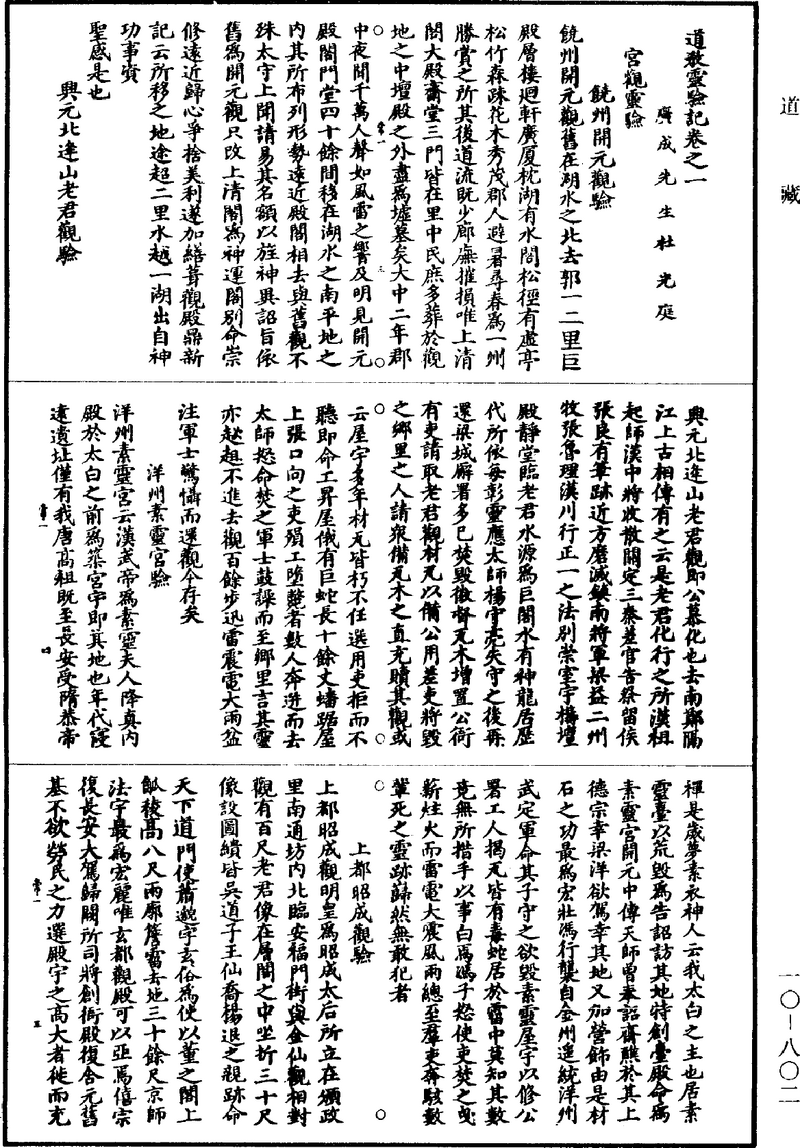 道藏
一〇—八〇二
道教靈驗記卷之一
廣成先生杜光庭
宮觀靈驗
饒州開元觀驗
饒州開元觀舊在湖水之北去郭一二里巨
殿層樓迴軒廣厦枕湖有水閣松徑有虛亭
松竹森踈花木秀茂郡人避暑尋春爲一州
勝賞之所其後道流既少廊廡摧損唯上清
閣大殿齋堂三門皆在里中民庶多葬於觀
地之中壇殿之外盡爲墟墓矣大中二年郡
中夜聞千萬人聲如風雷之響及明見開元
殿閣門堂四十餘間移在湖水之南平地之
内其所布列形勢遠近殿閣相去與舊觀不
殊太守上聞請易其名額以旌神異詔旨依
舊爲開元觀只改上清閣爲神運閣別命崇
修遠近歸心爭捨美利遂加繕葺觀殿鼎新
記云所移之地途超二里水越一湖出自神
功事資
聖感是也
興元北逄山老君觀驗
興元北逄山老君觀即公慕化也去南鄭隔
江上古相傳有之云是老君化行之所漢祖
起師漢中將收散關定三秦差官告祭留侯
張良有筆跡近方磨滅鎮南將軍梁益二州
牧張魯理漢川行正一之法別崇室宇構壇
殿靜堂臨老君水源爲巨閣水有神龍居歷
代所依每彰靈應太師楊守亮失守之後再
還梁城廨署多已焚毀徵督瓦木增置公衙
有吏請取老君觀材瓦以備公用差吏將毀
之鄉里之人請衆備瓦木之直充贖其觀或
云屋宇多年材瓦皆朽不任選用吏拒而不
聽即命工昇屋俄有巨蛇長十餘丈蟠踞屋
上張口向之吏殞工墮斃者數人奔迸而去
太師怒命焚之軍士鼓譟而至鄉里言其靈
亦趑趄不進去觀百餘步迅雷震電大雨盆
注軍士驚懾而還觀今存矣
洋州素靈宮驗
洋州素靈宮云漢武帝爲素靈夫人降真内
殿於太白之前爲築宮宇即其地也年代寖
遠遺址僅有我唐高祖既至長安受隋恭帝
禪是歲夢素衣神人云我太白之主也居素
靈臺以荒毀爲告詔訪其地特創臺殿命爲
素靈宮開元中傳天師曾奉詔齋醮於其上
德宗幸梁洋欲駕幸其地又加營飾由是材
石之功最爲宏壯馮行襲自金州進統洋州
武定軍命其子守之欲毀素靈屋宇以修公
署工人揭瓦皆有毒蛇居於霤中莫知其數
竟無所措手以事白馮馮子怒使吏焚之曳
薪炷火而雷電大震風雨總至羣吏奔駭數
輩死之靈跡巋然無敢犯者
上都昭成觀驗
上都昭成觀明皇爲昭成太后所立在頒政
里南通坊内北臨安福門街與金仙觀相對
觀有百尺老君像在層閣之中坐折三十尺
像設圖繢皆吳道子王仙喬楊退之親跡命
天下道門使蕭邈字玄俗爲使以董之閣上
觚稜高八尺兩廊簷霤去地三十餘尺京師
法宇最爲宏麗唯玄都觀殿可以亞焉僖宗
復長安大駕歸闕所司將創衙殿復含元舊
基不欲勞民之力選殿宇之高大者徙而充